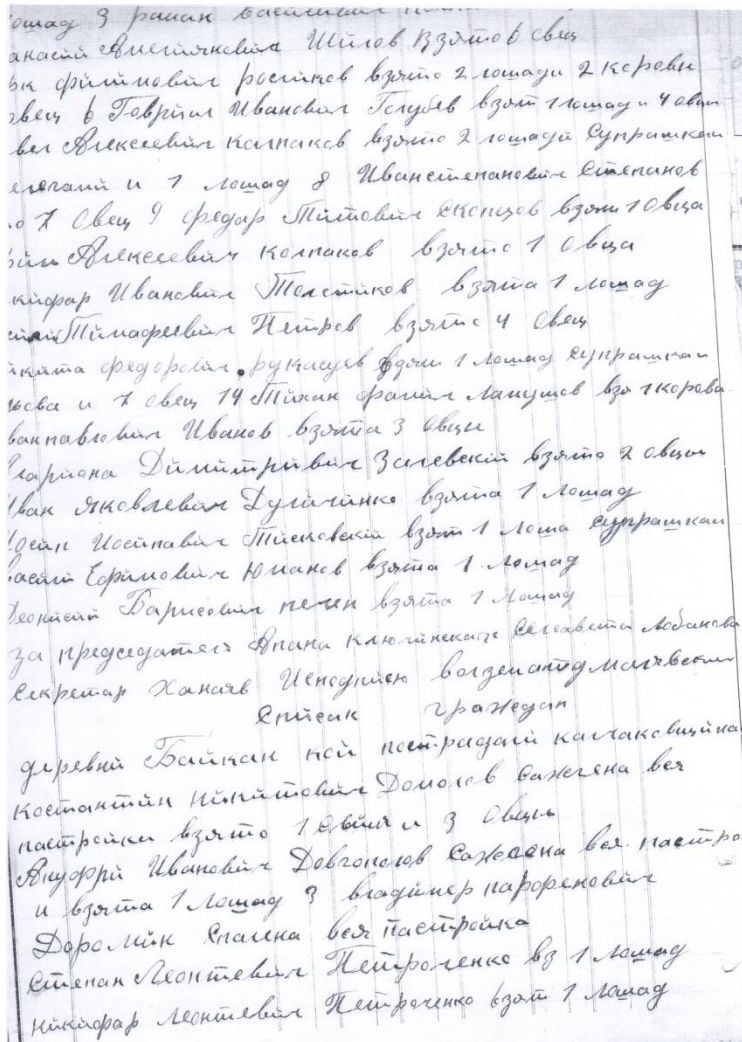 ошад 3 раман василивич
анасий Аместякович Шилов взято 6 овец
ок филимович ростков взято 2 лошади 2 коровы
овец 6 Гаврил Иванович Голубев взят 1 лошад и 4 овцы
вел Алексеевич Калпаков взято 2 лошади супрашкой
телегами и 1 лошад 8 Иван степанович Степанов
то 7 овец 9 федар Титович скопцов взяли 1 овца
Алексеевич колпаков взято 1 овца
кифар Иванович Толстиков взята 1 лошад
Тимафеевич Петров взято 4 овец
икита федорович рукасуев взяли 1 лошад супрашкай
ьова и 7 овец 14 Тихан фомич Лапушов взя 1 корова
ван павлович Иванов взята 3 овцы
лариона Димитривич Залевский взято 2 овцы
Иван Яковлевич Дугичинко взята 1 лошад
Иосип Иосипавич Тисковский взят 1 лоша супрашкай
васили Ефимович Юманов взята 1 лошад
Деонисий Барисович печен взята 1 лошад
за председателя Апана ключинскаго селсавета Лобанова
Секретар Ханаяв
Список граждан
деревни Байкан кой пастрадали калчаковщина
Костантин никитович Домогов сажжена вся
пастройки взято 1 свиня и 3 овцы
Ануфри Иванович Довгополов сажжена вся пастро
и взята 1 лошад 3 владимер парфенович
Доромин спалена вся пастройка
Степан Леонтевич Петроченко вз 1 лошад
никифар Леонтевич Петроченко взят 1 лошад